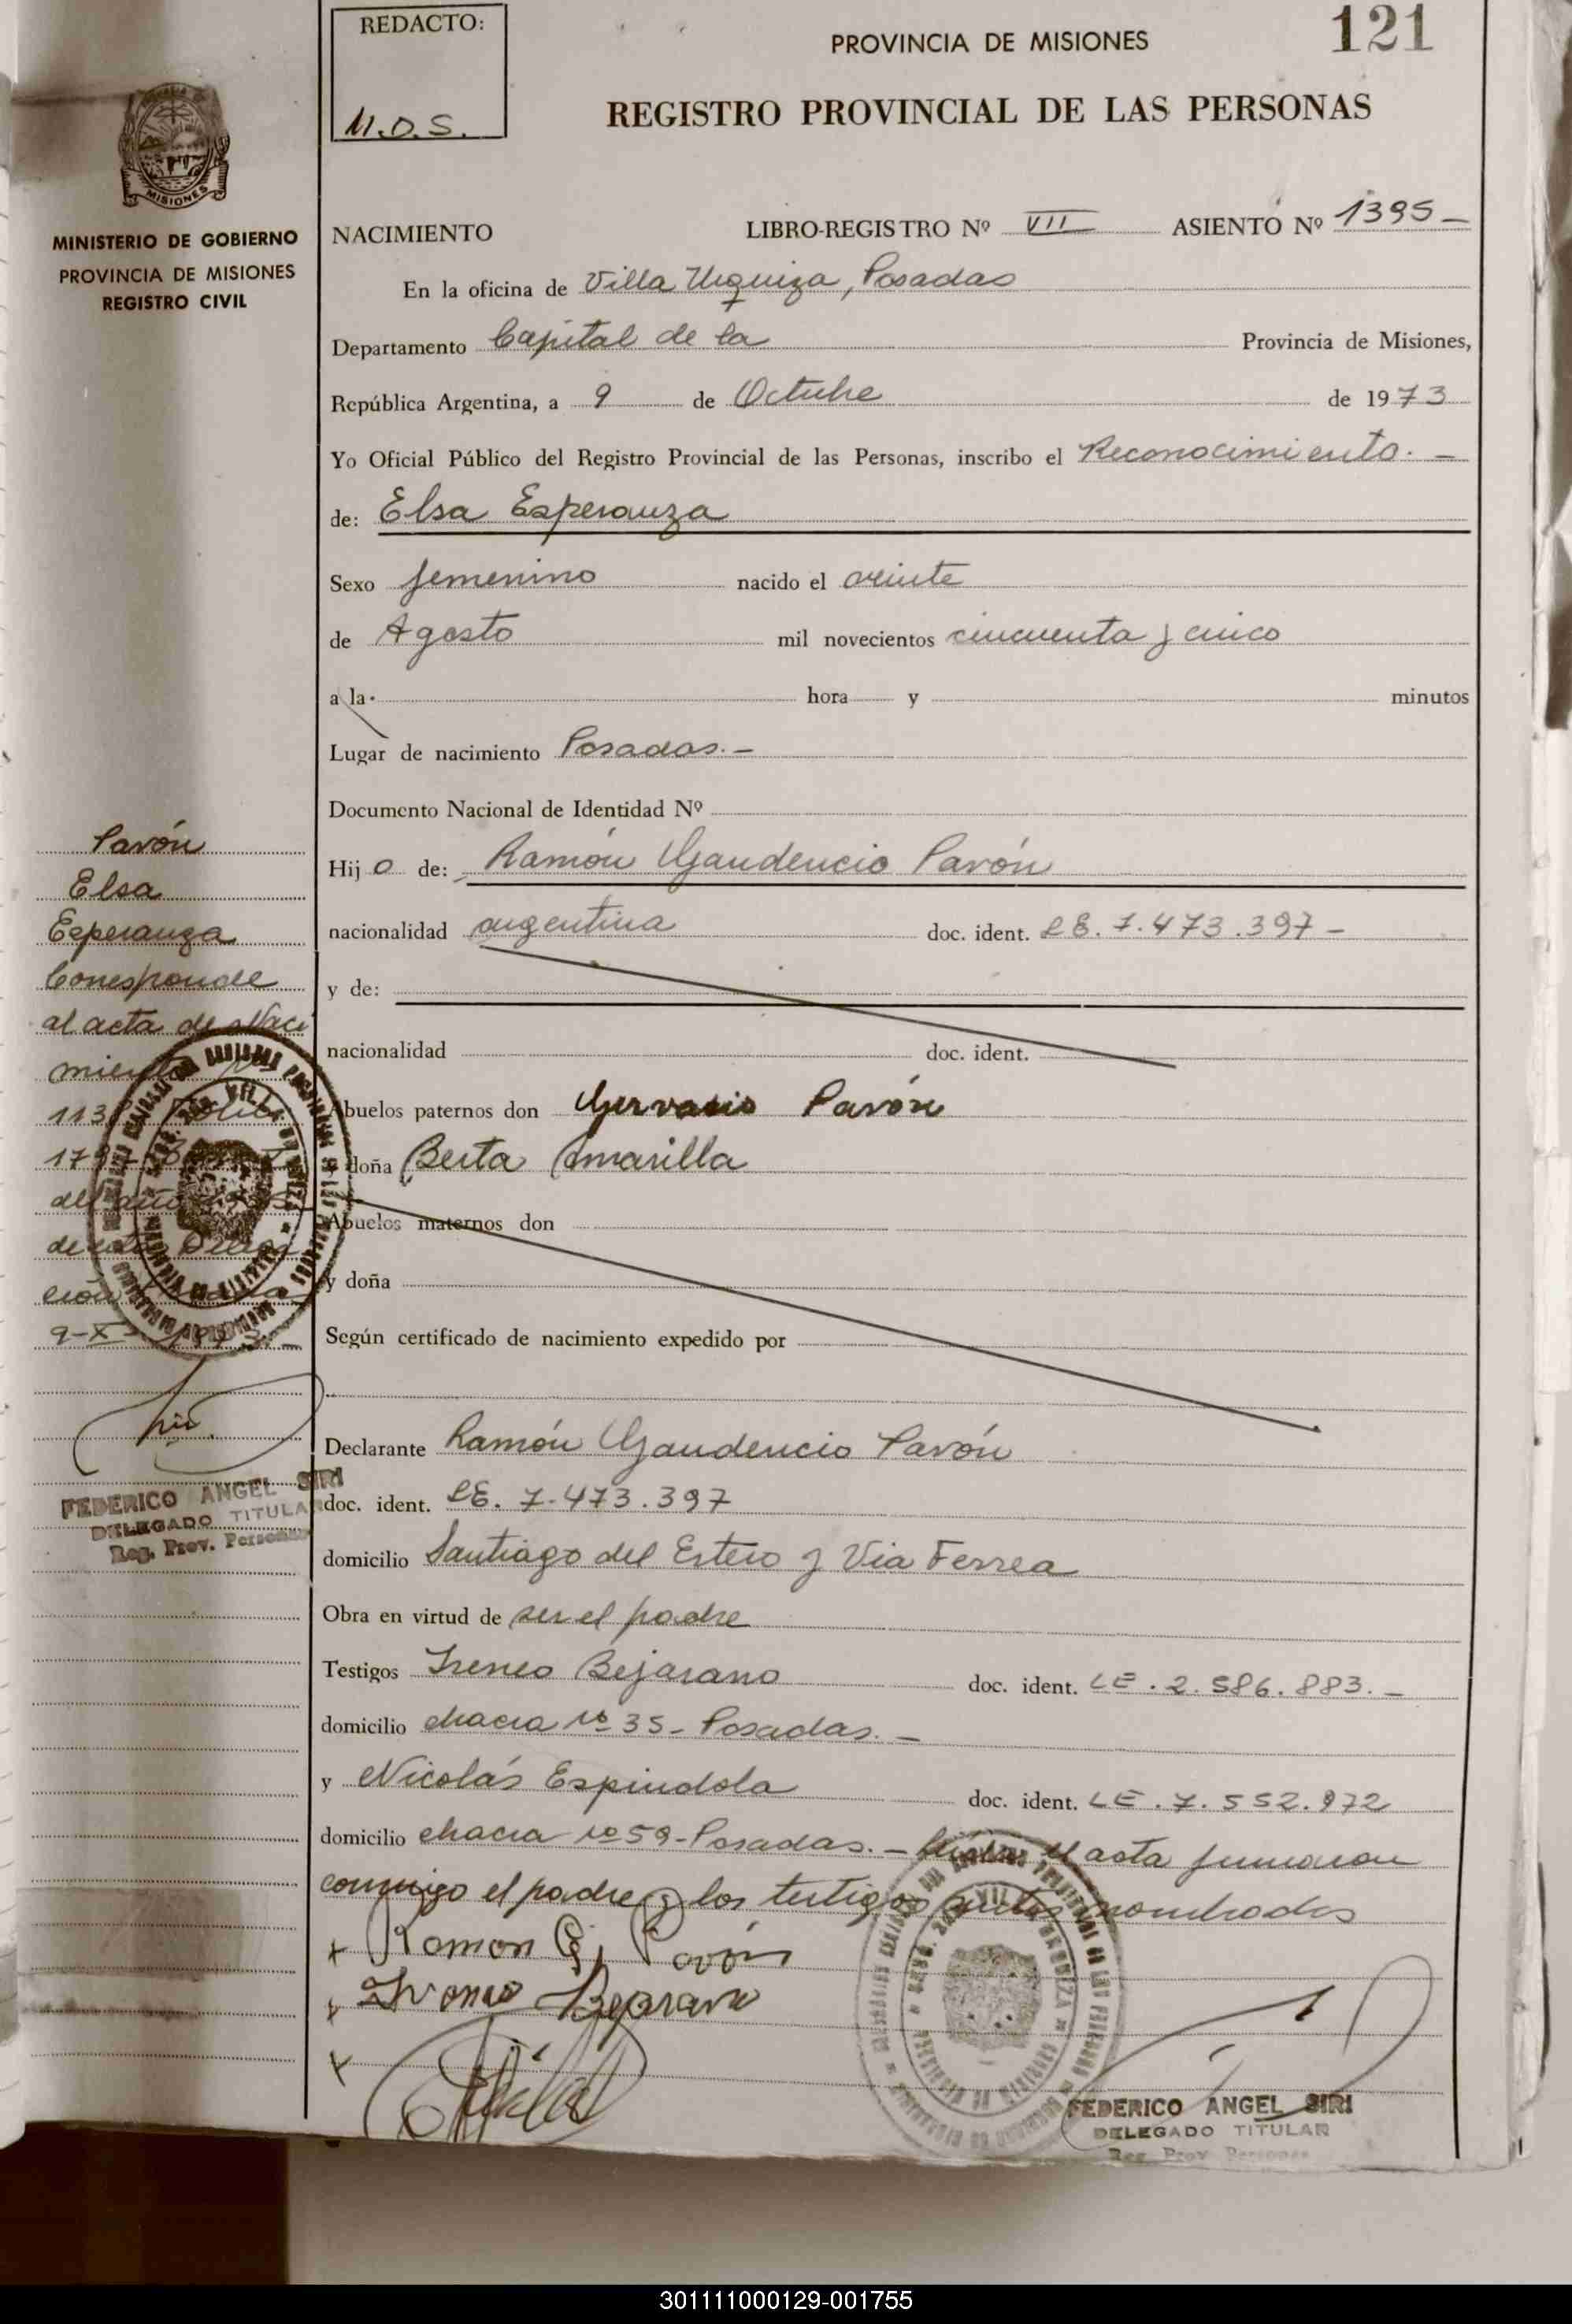 REDACTO:
M.O.S.
PROVINCIA DE MISIONES
121
REGISTRO PROVINCIAL DE LAS PERSONAS
MISIONES
MINISTERIO DE GOBIERNO
PROVINCIA DE MISIONES
REGISTRO CIVIL
NACIMIENTO LIBRO-REGISTRO Nº VII ASIENTO Nº 1395-
En la oficina de Villa Urquiza, Posadas
Departamento Capital de la Provincia de Misiones,
República Argentina, a 9 de Octubre de 1973
Yo Oficial Público del Registro Provincial de las Personas, inscribo el Reconocimiento.-
de: Elsa Esperanza
Sexo femenino nacido el veinte
de Agosto mil novecientos cincuenta y cinco
a la hora y minutos
Lugar de nacimiento Posadas.-
Documento Nacional de Identidad Nº
Hijo de: Ramón Gaudencio Pavón
nacionalidad argentina doc. ident. LE. 7.473.397-
y de:
nacionalidad doc. ident.
Abuelos paternos don Gervasio Pavón
y doña Berta Amarilla
Abuelos maternos don
y doña
Según certificado de nacimiento expedido por
Declarante Ramón Gaudencio Pavón
doc. ident. LE. 7.473.397
domicilio Santiago del Estero y Via Ferrea
Obra en virtud de ser el padre
Testigos Ireneo Bejarano doc. ident. LE. 2.586.883.-
domicilio chacra nº 35- Posadas.-
y Nicolás Espindola doc. ident. LE. 7.552.972
domicilio chacra nº 59-Posadas.- el acta firmaron
conmigo el padre y los testigos antes nombrados
Ramon G. Pavón
Ireneo Bejarano
FEDERICO ANGEL SIRI
DELEGADO TITULAR
Reg. Prov. Personas
Pavón
Elsa
Esperanza
Corresponde
al acta de Naci
miento
del año
de esta Delega
ción
FEDERICO ANGEL SIRI
DELEGADO TITULAR
Reg. Prov. Personas
301111000129-001755